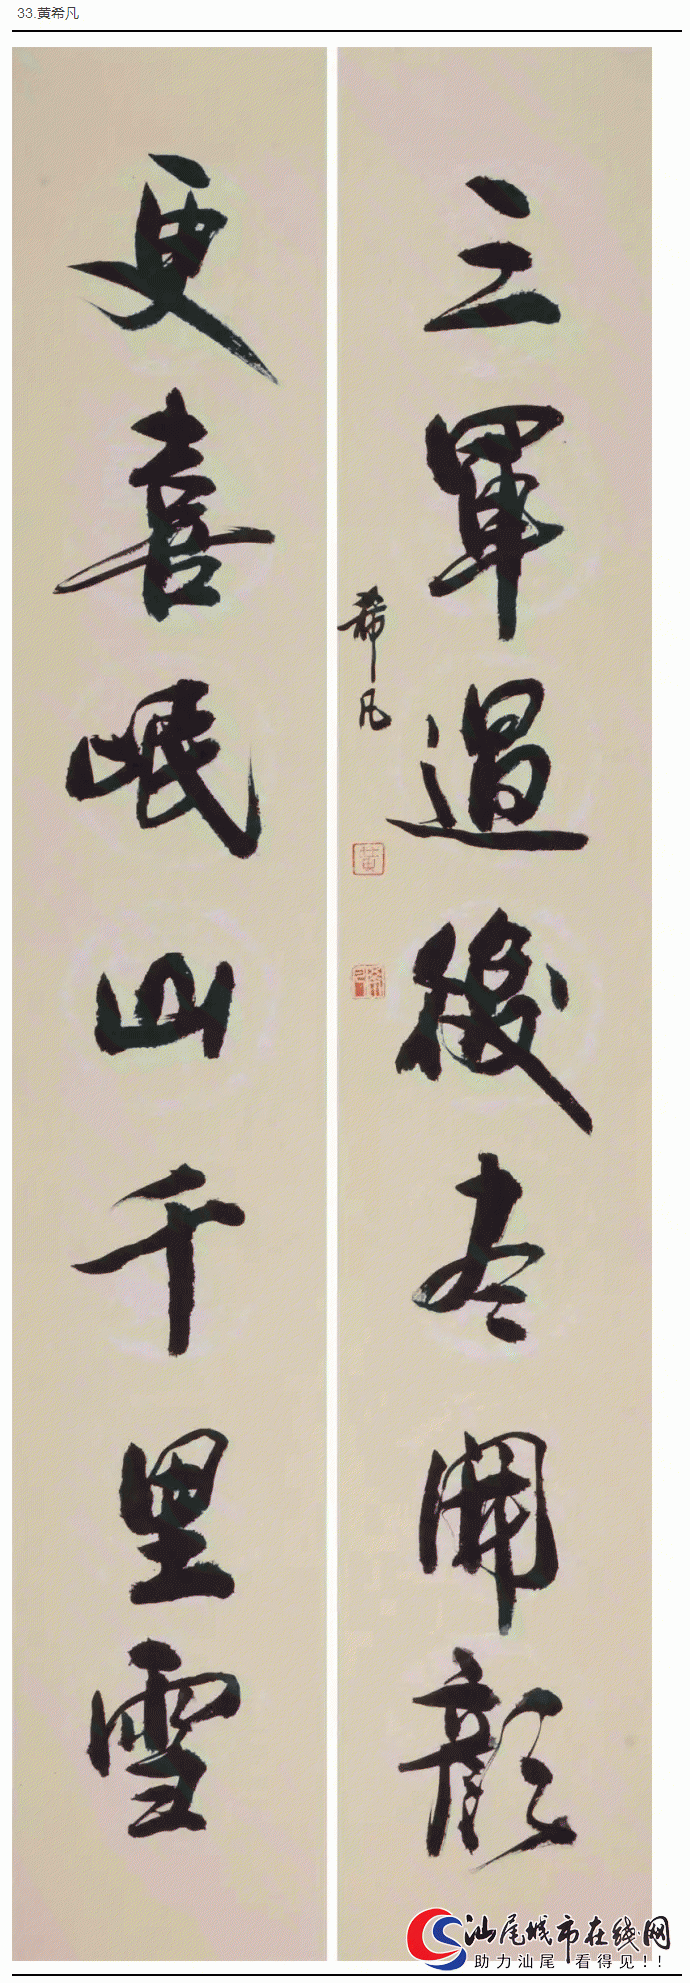 33.黄希凡
更喜岷山千里雪
三軍過後尽開顔
希凡
黄
汕尾城市在线网
助力汕尾 看得见!!